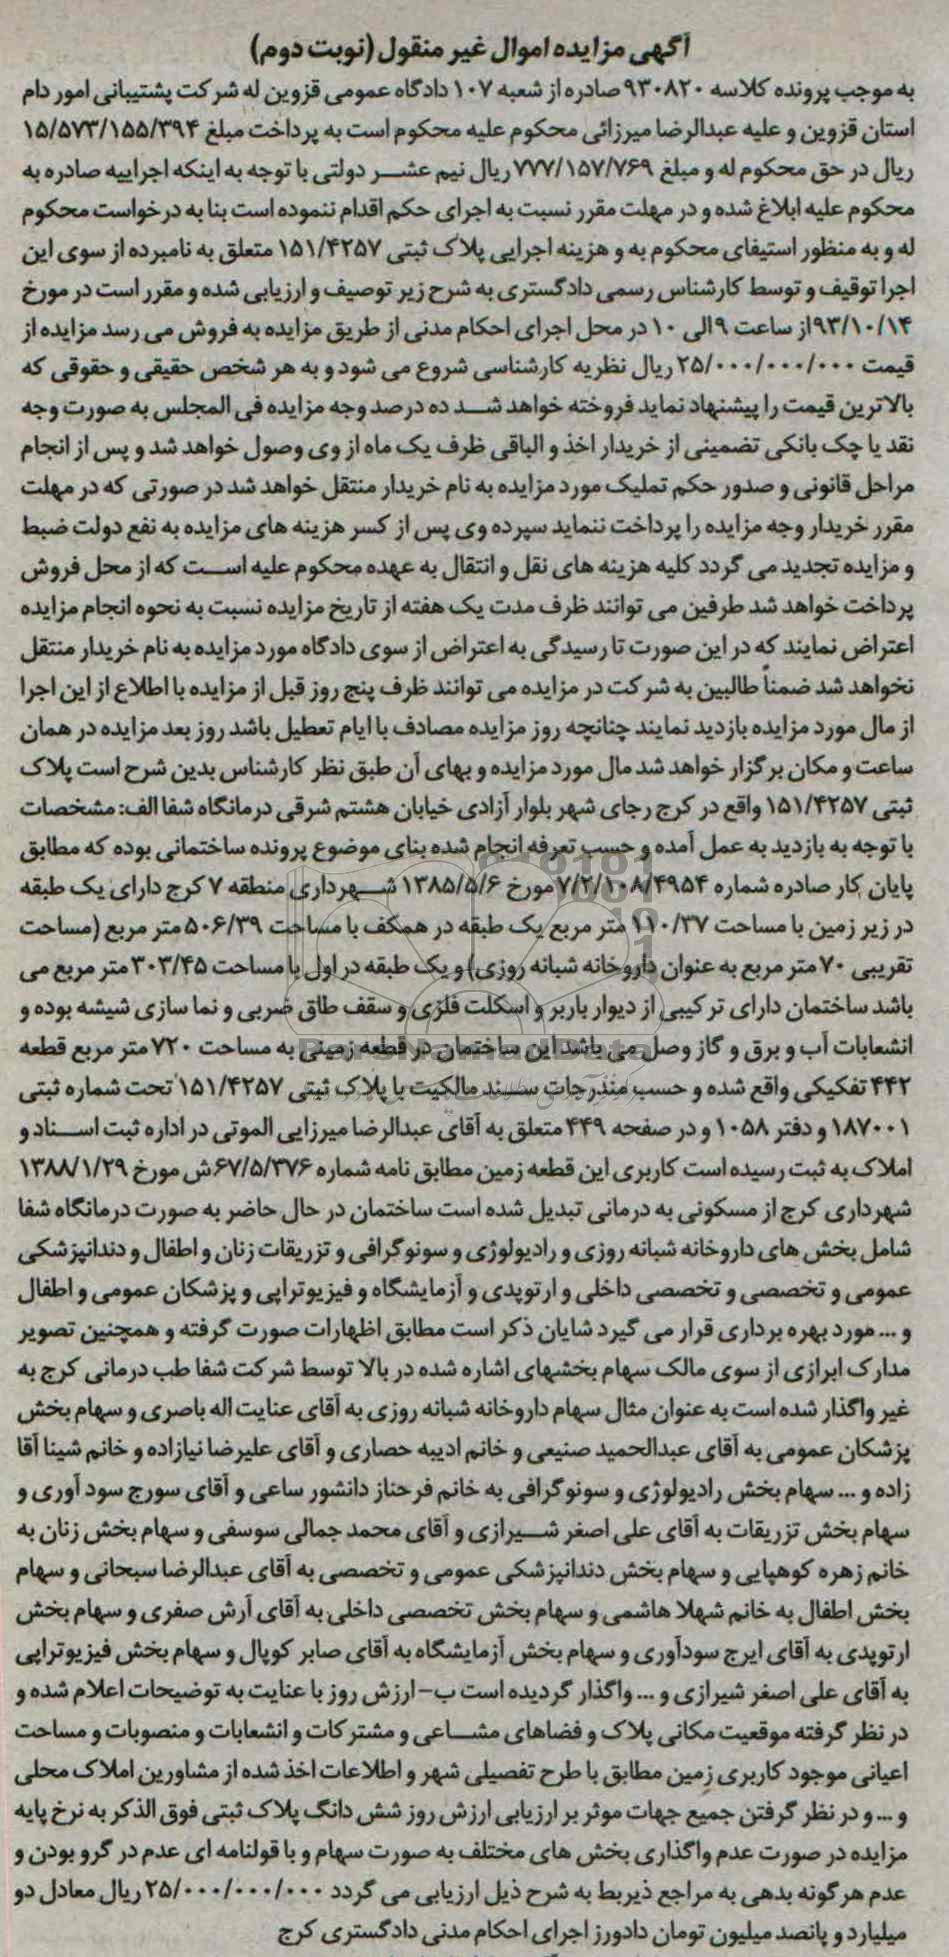 آگهی مزایده اموال غیر منقول (نوبت دوم)
به موجب پرونده کلاسه ۹۳۰۸۲۰ صادره از شعبه ۱۰۷ دادگاه عمومی قزوین له شرکت پشتیبانی امور دام
استان قزوین و علیه عبدالرضا میرزائی محکوم علیه محکوم است به پرداخت مبلغ ۱۵/۵۷۳/۱۵۵/۳۹۴
ریال در حق محکوم له و مبلغ ۷۷۷/۱۵۷/۷۶۹ ریال نیم عشر دولتی با توجه به اینکه اجراییه صادره به
محکوم علیه ابلاغ شده و در مهلت مقرر نسبت به اجرای حکم اقدام ننموده است بنا به درخواست محکوم
له و به منظور استیفای محکوم به و هزینه اجرایی پلاک ثبتی ۱۵۱/۴۲۵۷ متعلق به نامبرده از سوی این
اجرا توقیف و توسط کارشناس رسمی دادگستری به شرح زیر توصیف و ارزیابی شده و مقرر است در مورخ
۹۳/۱۰/۱۴ از ساعت ۹ الی ۱۰ در محل اجرای احکام مدنی از طریق مزایده به فروش می رسد مزایده از
قیمت ۲۵/۰۰۰/۰۰۰/۰۰۰ ریال نظریه کارشناسی شروع می شود و به هر شخص حقیقی و حقوقی که
بالاترین قیمت را پیشنهاد نماید فروخته خواهد شد ده درصد وجه مزایده فی المجلس به صورت وجه
نقد یا چک بانکی تضمینی از خریدار اخذ و الباقی ظرف یک ماه از وی وصول خواهد شد و پس از انجام
مراحل قانونی و صدور حکم تملیک مورد مزایده به نام خریدار منتقل خواهد شد در صورتی که در مهلت
مقرر خریدار وجه مزایده را پرداخت ننماید سپرده وی پس از کسر هزینه های مزایده به نفع دولت ضبط
و مزایده تجدید می گردد کلیه هزینه های نقل و انتقال به عهده محکوم علیه است که از محل فروش
پرداخت خواهد شد طرفین می توانند ظرف مدت یک هفته از تاریخ مزایده نسبت به نحوه انجام مزایده
اعتراض نمایند که در این صورت تا رسیدگی به اعتراض از سوی دادگاه مورد مزایده به نام خریدار منتقل
نخواهد شد ضمناً طالبین به شرکت در مزایده می توانند ظرف پنج روز قبل از مزایده با اطلاع از این اجرا
از مال مورد مزایده بازدید نمایند چنانچه روز مزایده مصادف با ایام تعطیل باشد روز بعد مزایده در همان
ساعت و مکان برگزار خواهد شد مال مورد مزایده و بهای آن طبق نظر کارشناس بدین شرح است پلاک
ثبتی ۱۵۱/۴۲۵۷ واقع در کرج رجای شهر بلوار آزادی خیابان هشتم شرقی درمانگاه شفا الف: مشخصات
با توجه به بازدید به عمل آمده و حسب تعرفه انجام شده بنای موضوع پرونده ساختمانی بوده که مطابق
پایان کار صادره شماره ۷/۲/۱۰۸/۴۹۵۴ مورخ ۱۳۸۵/۵/۶ شهرداری منطقه ۷ کرج دارای یک طبقه
در زیر زمین با مساحت ۱۱۰/۳۷ متر مربع یک طبقه در همکف با مساحت ۵۰۶/۳۹ متر مربع (مساحت
تقریبی ۷۰ متر مربع به عنوان داروخانه شبانه روزی) و یک طبقه در اول با مساحت ۳۰۳/۴۵ متر مربع می
باشد ساختمان دارای ترکیبی از دیوار باربر و اسکلت فلزی و سقف طاق ضربی و نما سازی شیشه بوده و
انشعابات آب و برق و گاز وصل می باشد این ساختمان در قطعه زمینی به مساحت ۷۲۰ متر مربع قطعه
۴۴۲ تفکیکی واقع شده و حسب مندرجات سند مالکیت با پلاک ثبتی ۱۵۱/۴۲۵۷ تحت شماره ثبتی
۱۸۷۰۰۱ و دفتر ۱۰۵۸ و در صفحه ۴۴۹ متعلق به آقای عبدالرضا میرزایی الموتی در اداره ثبت اسناد و
املاک به ثبت رسیده است کاربری این قطعه زمین مطابق نامه شماره ۶۷/۵/۳۷۶ش مورخ ۱۳۸۸/۱/۲۹
شهرداری کرج از مسکونی به درمانی تبدیل شده است ساختمان در حال حاضر به صورت درمانگاه شفا
شامل بخش های داروخانه شبانه روزی و رادیولوژی و سونوگرافی و تزریقات زنان و اطفال و دندانپزشکی
عمومی و تخصصی و تخصصی داخلی و ارتوپدی و آزمایشگاه و فیزیوتراپی و پزشکان عمومی و اطفال
و ... مورد بهره برداری قرار می گیرد شایان ذکر است مطابق اظهارات صورت گرفته و همچنین تصویر
مدارک ابرازی از سوی مالک سهام بخشهای اشاره شده در بالا توسط شرکت شفا طب درمانی کرج به
غیر واگذار شده است به عنوان مثال سهام داروخانه شبانه روزی به آقای عنایت اله باصری و سهام بخش
پزشکان عمومی به آقای عبدالحمید صنیعی و خانم ادیبه حصاری و آقای علیرضا نیازاده و خانم شینا آقا
زاده و ... سهام بخش رادیولوژی و سونوگرافی به خانم فرحناز دانشور ساعی و آقای سورج سود آوری و
سهام بخش تزریقات به آقای علی اصغر شیرازی و آقای محمد جمالی سوسفی و سهام بخش زنان به
خانم زهره کوهپایی و سهام بخش دندانپزشکی عمومی و تخصصی به آقای عبدالرضا سبحانی و سهام
بخش اطفال به خانم شهلا هاشمی و سهام بخش تخصصی داخلی به آقای آرش صفری و سهام بخش
ارتوپدی به آقای ایرج سودآوری و سهام بخش آزمایشگاه به آقای صابر کوپال و سهام بخش فیزیوتراپی
به آقای علی اصغر شیرازی و ... واگذار گردیده است ب- ارزش روز با عنایت به توضیحات اعلام شده و
در نظر گرفته موقعیت مکانی پلاک و فضاهای مشاعی و مشترکات و انشعابات و منصوبات و مساحت
اعیانی موجود کاربری زمین مطابق با طرح تفصیلی شهر و اطلاعات اخذ شده از مشاورین املاک محلی
و ... و در نظر گرفتن جمیع جهات موثر بر ارزیابی ارزش روز شش دانگ پلاک ثبتی فوق الذکر به نرخ پایه
مزایده در صورت عدم واگذاری بخش های مختلف به صورت سهام و با قولنامه ای عدم در گرو بودن و
عدم هر گونه بدهی به مراجع ذیربط به شرح ذیل ارزیابی می گردد ۲۵/۰۰۰/۰۰۰/۰۰۰ ریال معادل دو
میلیارد و پانصد میلیون تومان دادورز اجرای احکام مدنی دادگستری کرج